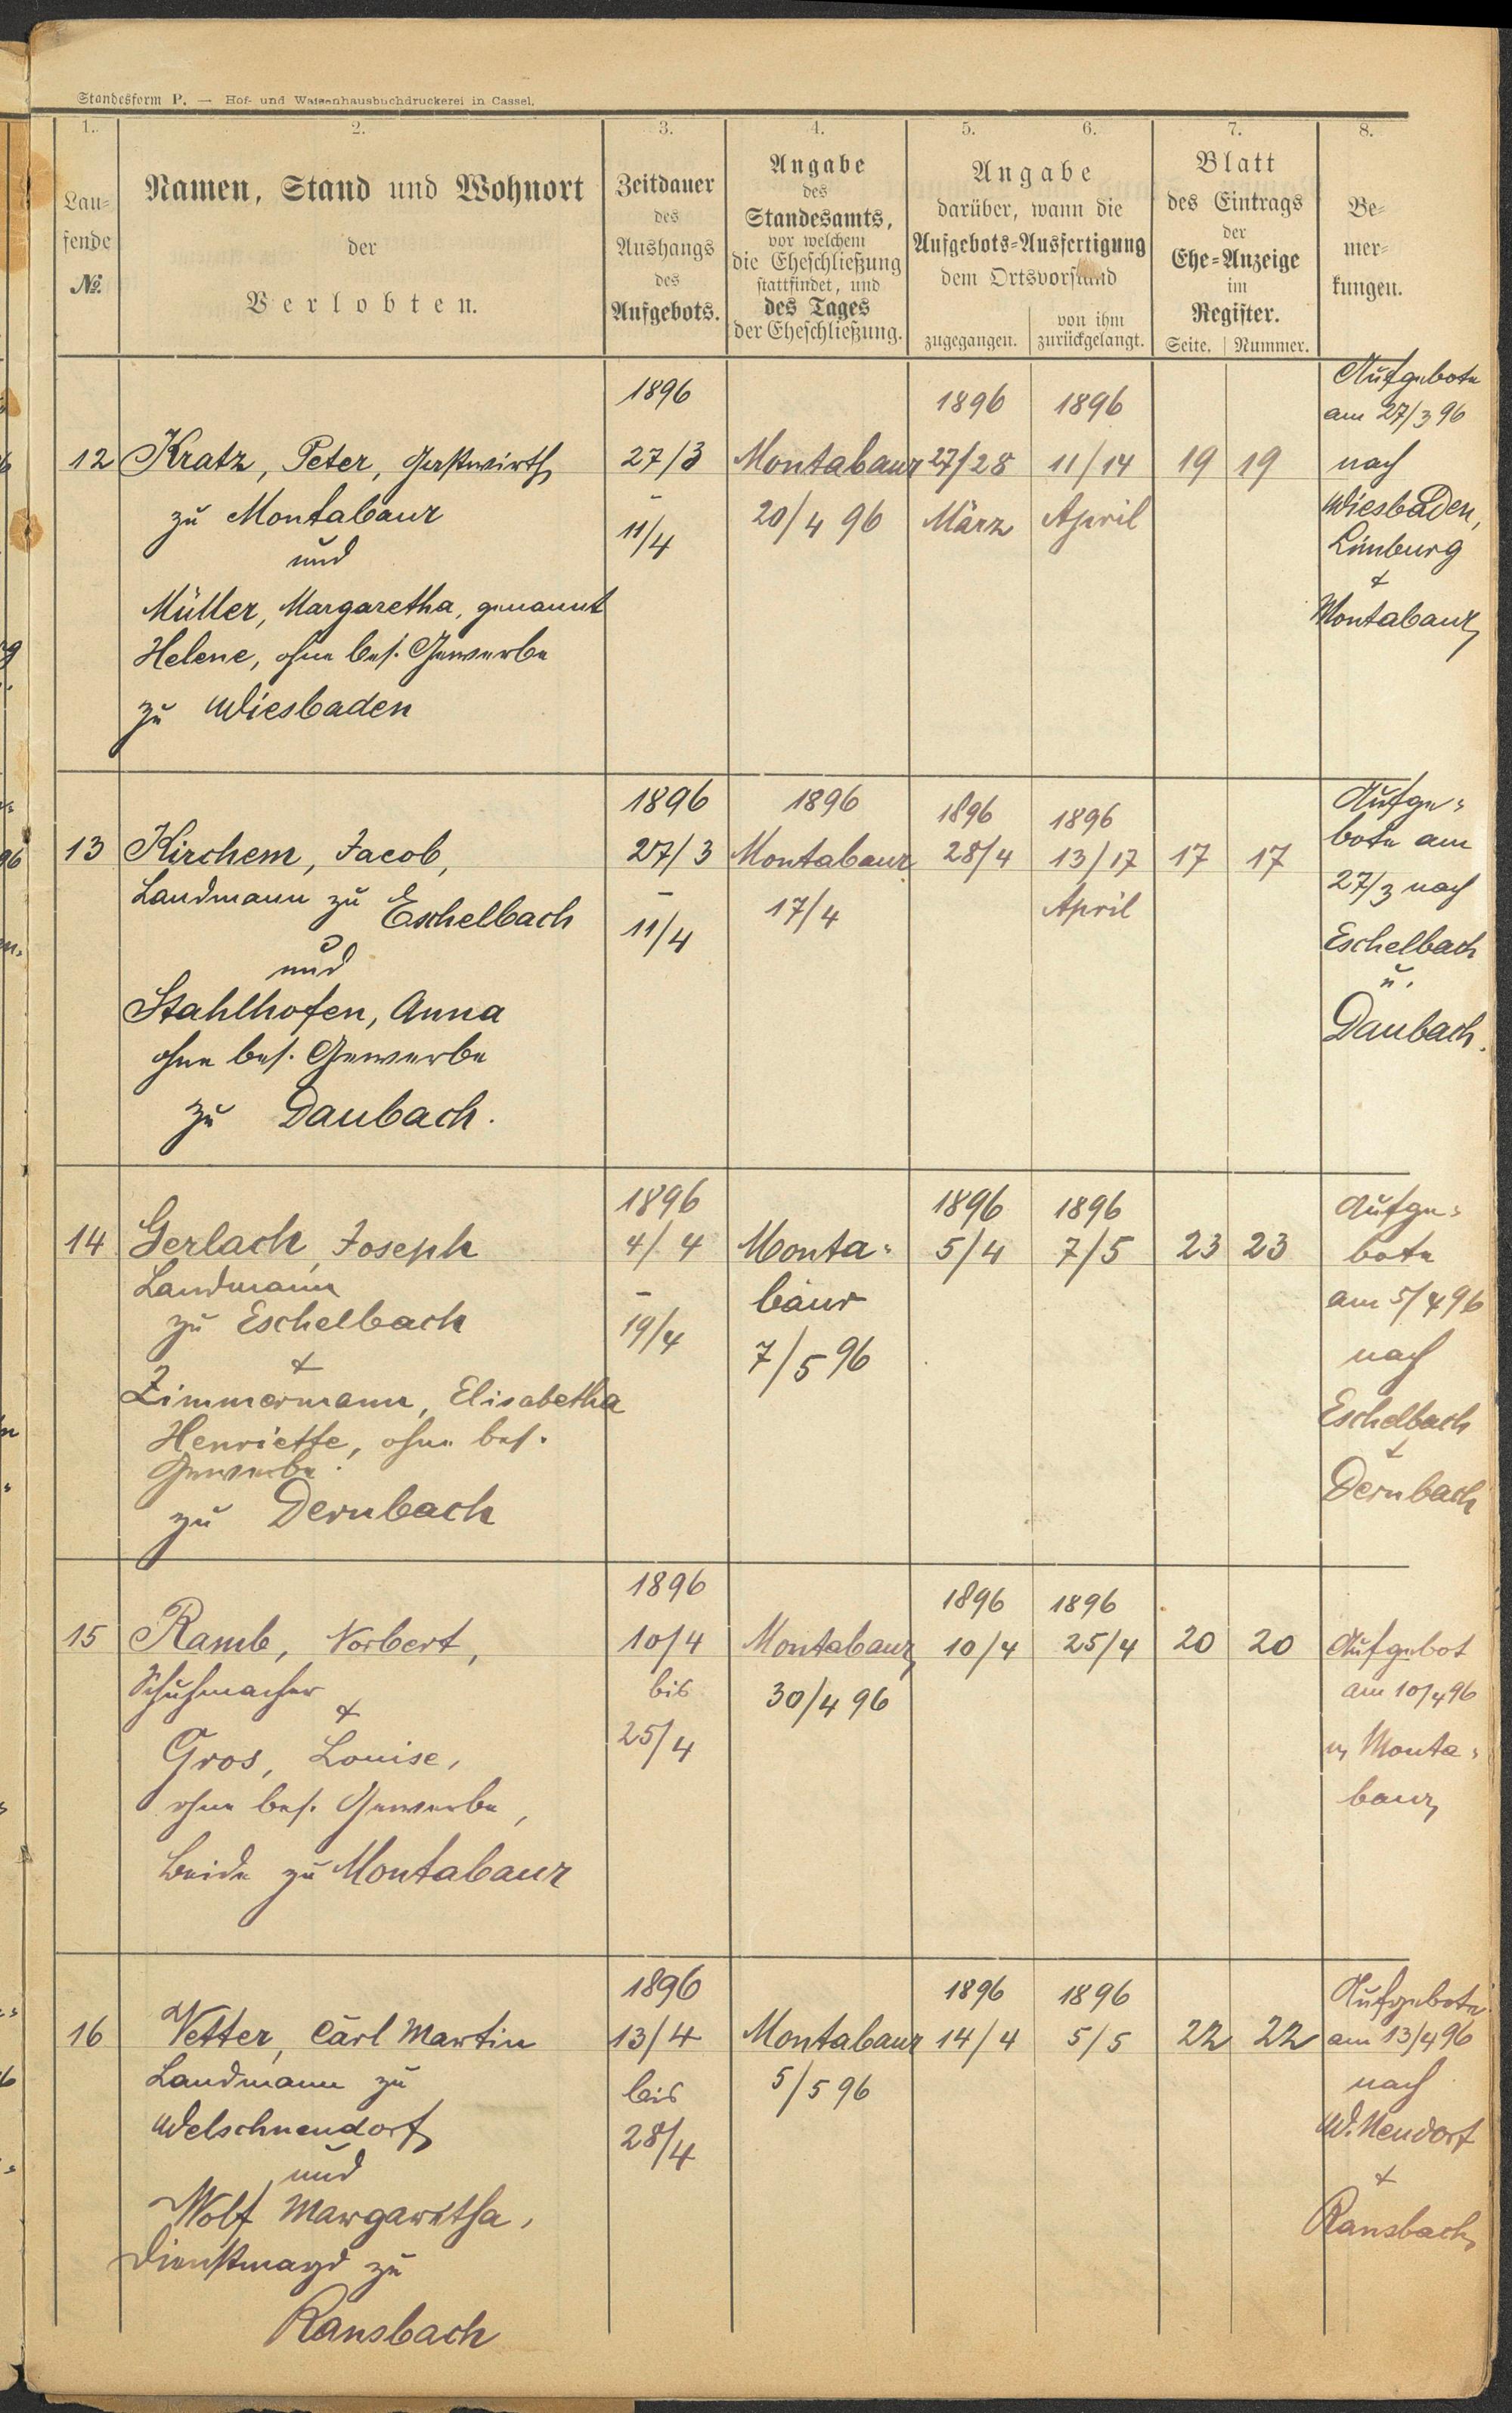 Standesform P. — Hof- und Waisenhausbuchdruckerei in Cassel.
1. 2. 3. 4. 5. 6. 7. 8.
Lau-
fende
№.
Namen, Stand und Wohnort
der
Verlobten.
Zeitdauer
des
Aushangs
des
Aufgebots.
Angabe
des
Standesamts,
vor welchem
die Eheschließung
stattfindet, und
des Tages
der Eheschließung.
Angabe
darüber, wann die
Aufgebots-Ausfertigung
dem Ortsvorstand
zugegangen.
von ihm
zurückgelangt.
Blatt
des Eintrags
der
Ehe-Anzeige
im
Register.
Seite. Nummer.
Be-
mer-
kungen.
12
Kratz, Peter, Gastwirth
zu Montabaur
und
Müller, Margaretha, genannt
Helene, ohne bes. Gewerbe
zu Wiesbaden
1896
27/3
-
11/4
Montabaur
20/4 96
1896
27/28
März
1896
11/14
April
19 19
Aufgebote
am 27/3 96
nach
Wiesbaden,
Limburg
+
Montabaur
13
Kirchem, Jacob,
Landmann zu Eschelbach
und
Stahlhofen, Anna
ohne bes. Gewerbe
zu Daubach.
1896
27/3
-
11/4
1896
Montabaur
17/4
1896
28/4
1896
13/17
April
17 17
Aufge-
bote am
27/3 nach
Eschelbach
u.
Daubach.
14
Gerlach, Joseph
Landmann
zu Eschelbach
+
Zimmermann, Elisabetha
Henriette, ohne bes.
Gewerbe.
zu Dernbach
1896
4/4
-
19/4
Monta-
baur
7/5 96
1896
5/4
1896
7/5
23 23
Aufge-
bote
am 5/4 96
nach
Eschelbach
+
Dernbach
15
Ramb, Norbert,
Schuhmacher
+
Gros, Louise,
ohne bes. Gewerbe,
beide zu Montabaur
1896
10/4
bis
25/4
Montabaur
30/4 96
1896
10/4
1896
25/4
20 20
Aufgebot
am 10/4 96
in Monta-
baur
16
Vetter, Carl Martin
Landmann zu
Welschneudorf
und
Wolf Margaretha,
Dienstmagd zu
Ransbach
1896
13/4
bis
28/4
Montabaur
5/5 96
1896
14/4
1896
5/5
22 22
Aufgebote
am 13/4 96
nach
W. Neudorf
+
Ransbach